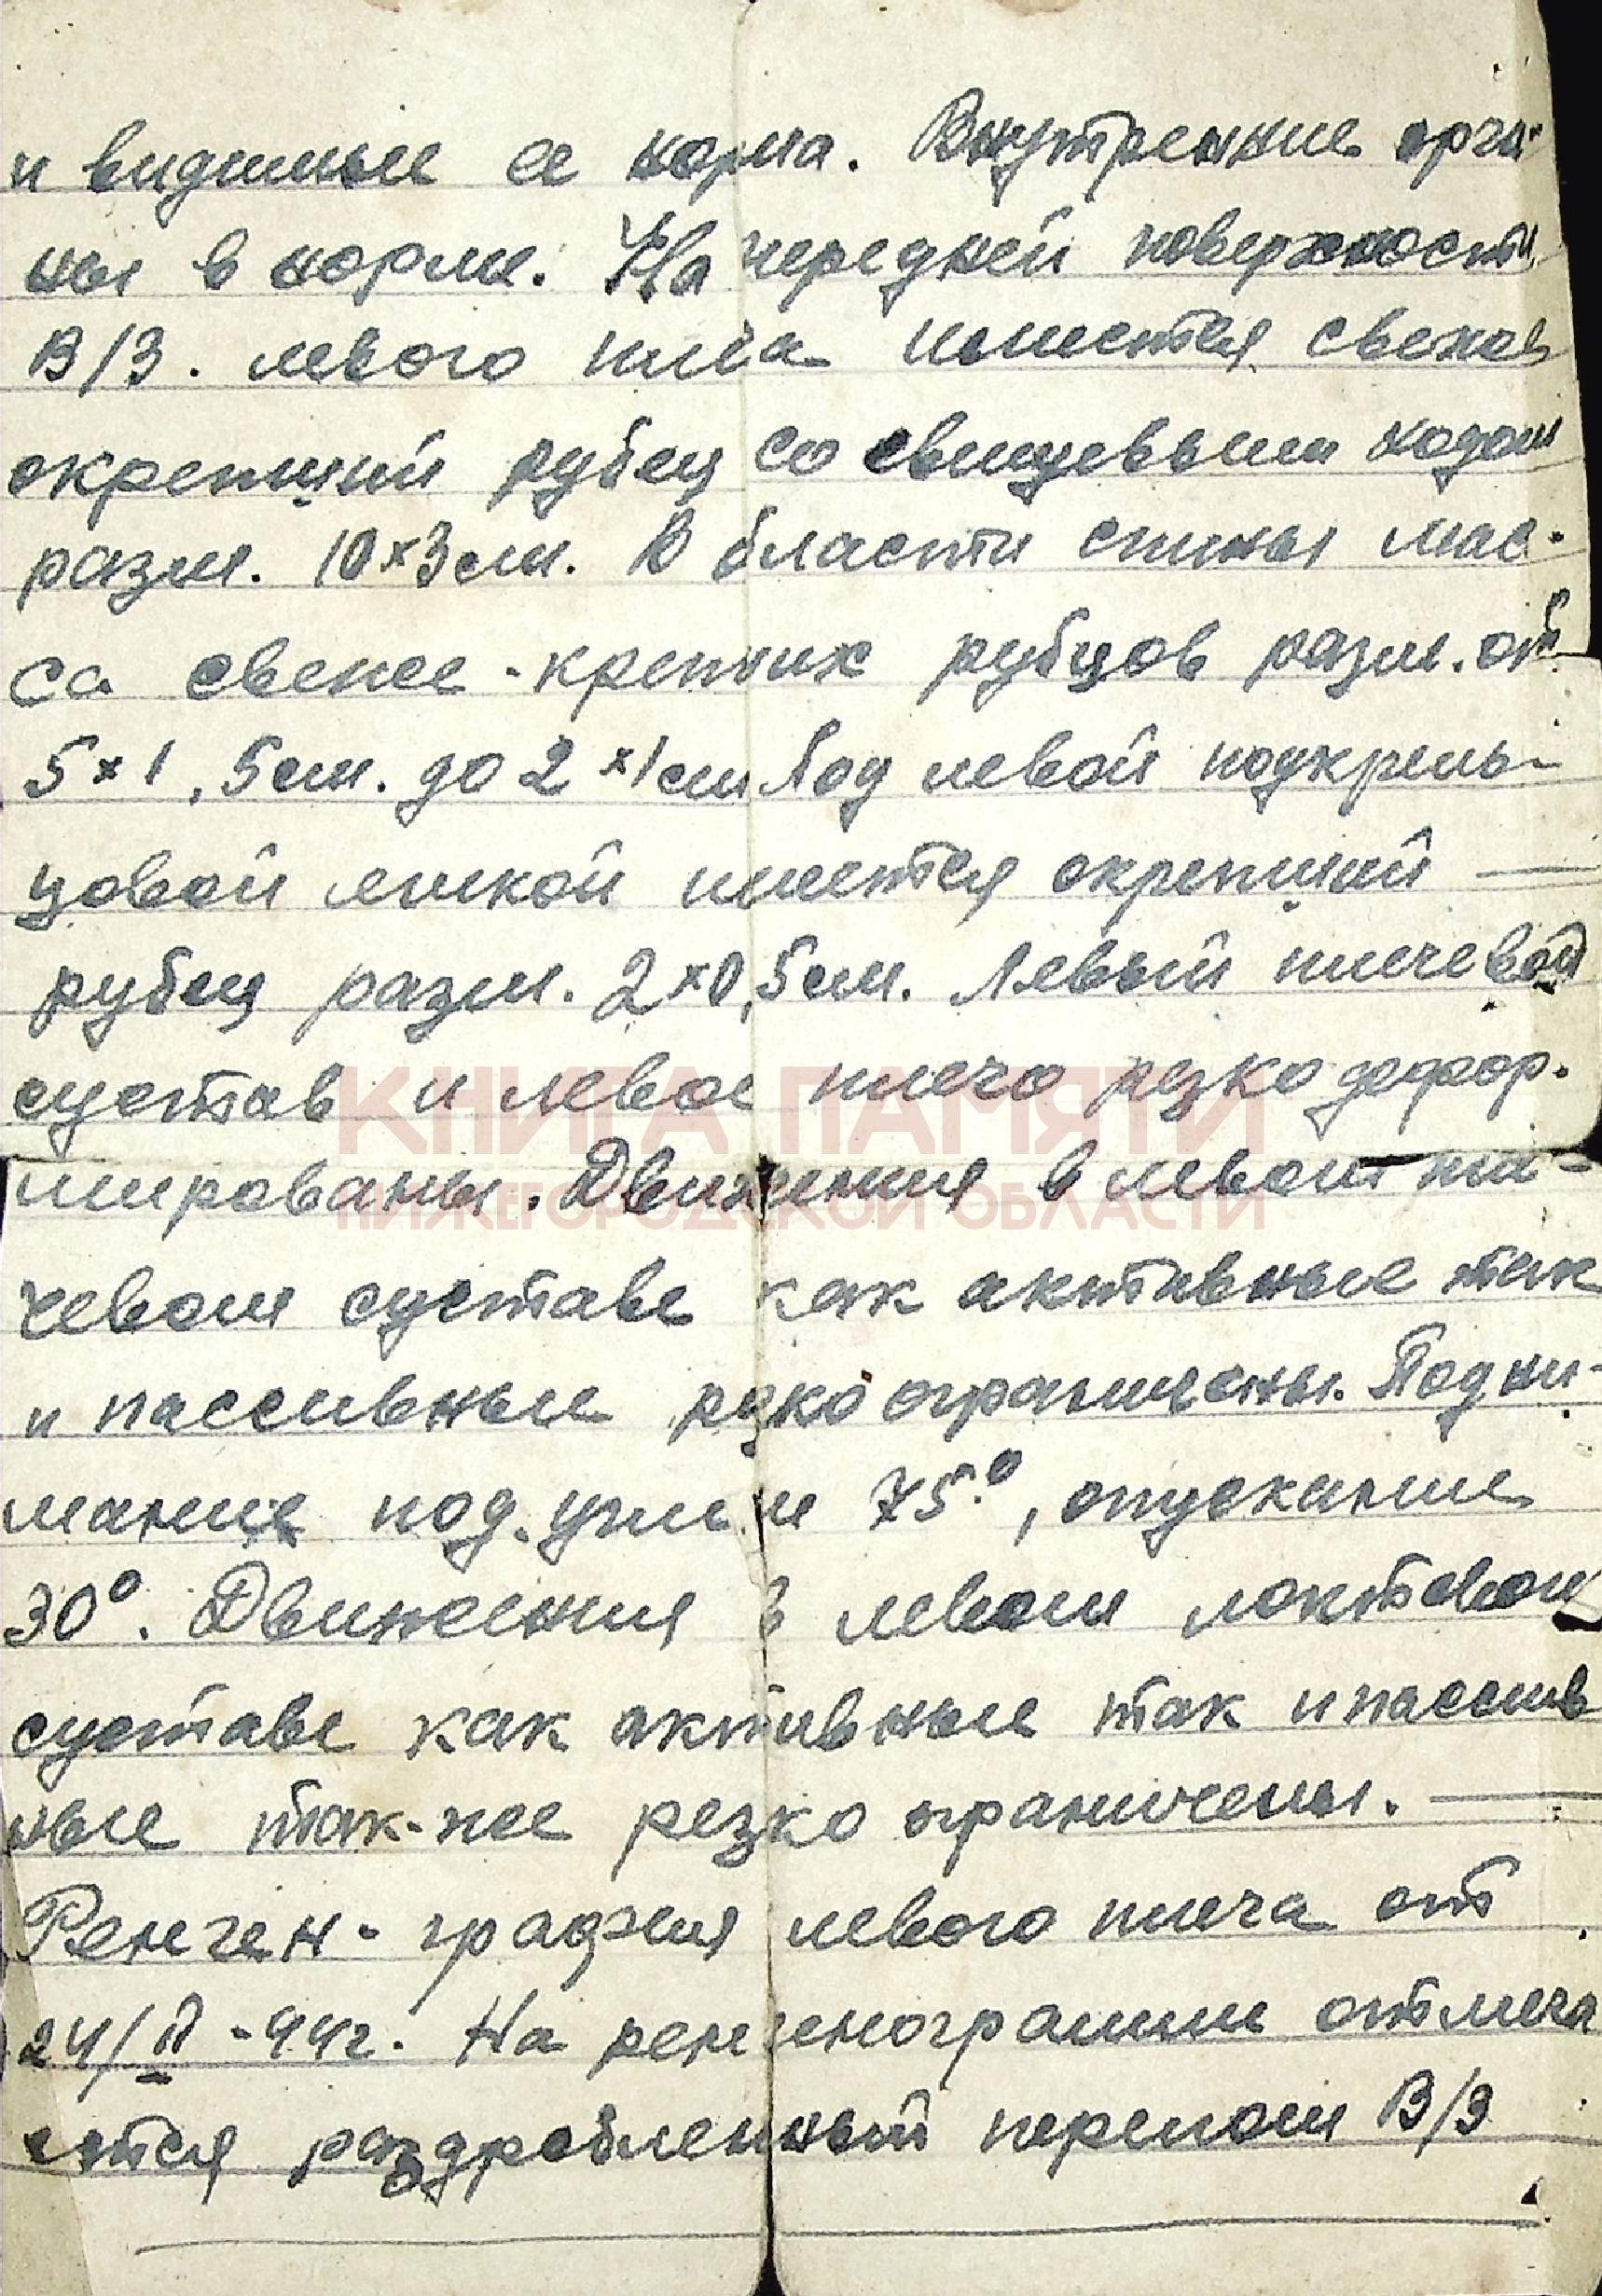 и видимые сл норма. Внутренние орга-
ны в норме. На передней поверхности
В/3. левого плеча имеется свежев
окрепший рубец со свищевым ходом
разм. 10×3 см. В области спины мас-
са свеже-крепших рубцов разм. от
5×1,5 см. до 2×1 см Под левой подкрель-
цовой ямкой имеется окрепший
рубец разм. 2×0,5 см. Левый плечевой
сустав и левое плечо резко дефор-
мированы. Движения в левом пле-
чевом суставе как активные так
и пассивные резко ограничены. Подни-
мание под. углом 75°, опускание
30°. Движения в левом локтевом
суставе как активные так и пассив
ные так-же резко ограничены.
Ренген-графия левого плеча от
24/II-44г. На ренгенограмме отмеча
ется раздробленный перелом В/3
КНИГА ПАМЯТИ
НИЖЕГОРОДСКОЙ ОБЛАСТИ